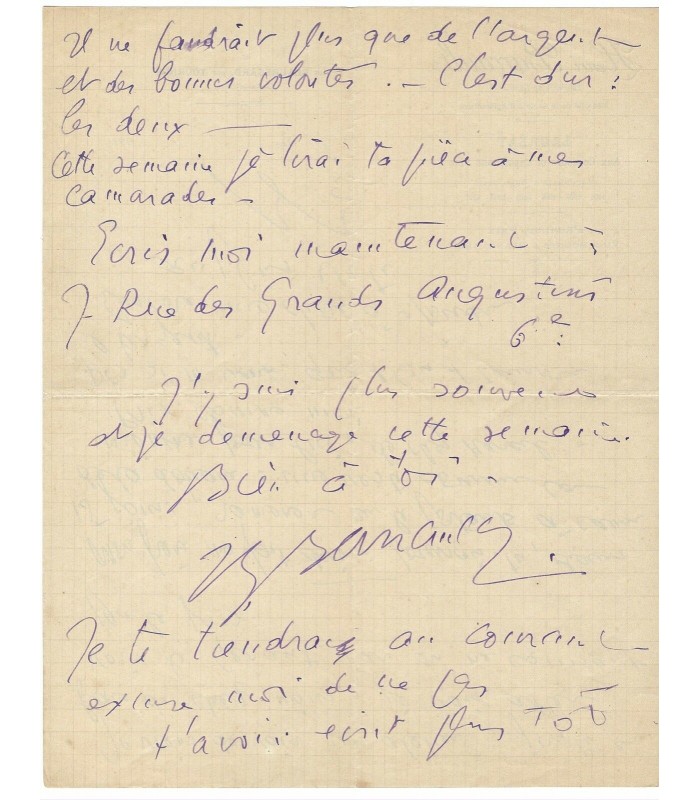 Il ne faudrait plus que de l'argent
et des bonnes volontés. — C'est dur :
les deux —
Cette semaine je lirai ta pièce à mes
camarades —
Ecris moi maintenant :
7 Rue des Grands Augustins
6e :
J'y suis plus souvent
et je demenage cette semaine.
Bien à toi —
JL Barrault.
Je te tiendrai au courant
excuse moi de ne pas
t'avoir ecrit plus Tôt